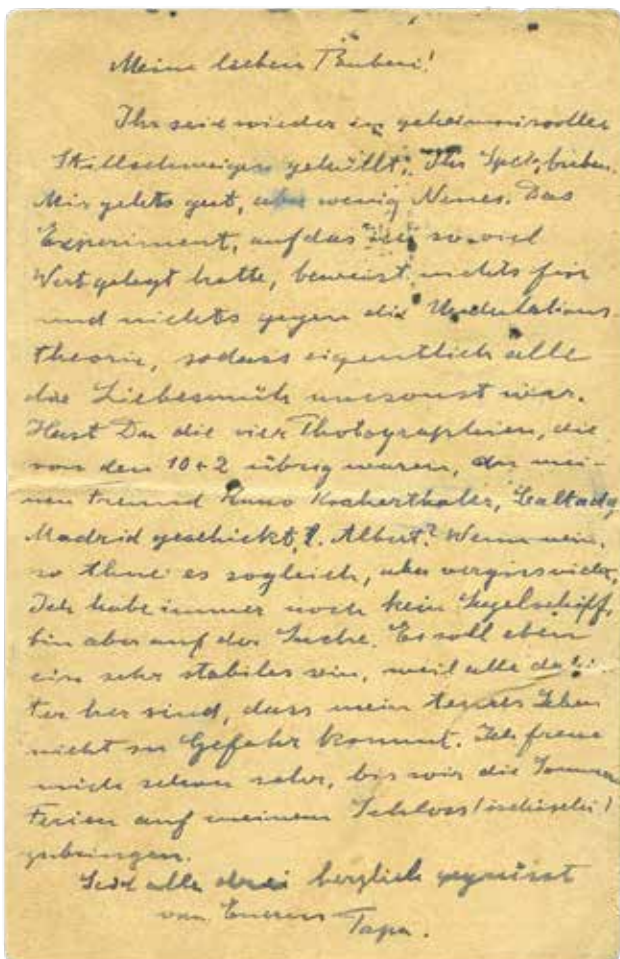 Meine lieben Buben!
Ihr seid wieder in geheimnisvolles
Stillschweigen gehüllt, Ihr
Mir gehts gut, aber wenig Neues. Das
Experiment, auf das ich so viel
Wert gelegt hatte, beweist nichts für
und nichts gegen die Undulations-
theorie, sodass eigentlich alle
die Liebesmüh umsonst war.
Hast Du die vier Photographien, die
von den 10+2 übrig waren, an mei-
nen Freund Kuno Kocherthaler, Lealtad
Madrid geschickt, l. Albert? Wenn nein,
so thue es sogleich, aber vergiss nicht,
Ich habe immer noch kein Segelschiff,
bin aber auf der Suche. Es soll eben
ein sehr stabiles sein, weil alle da hin-
ter her sind, dass mein teures Leben
nicht in Gefahr kommt. Ich freue
mich schon sehr, bis wir die Sommer
Ferien auf meinem Schloss
zubringen.
Seid alle drei herzlich gegrüsst
von Euerem
Papa.